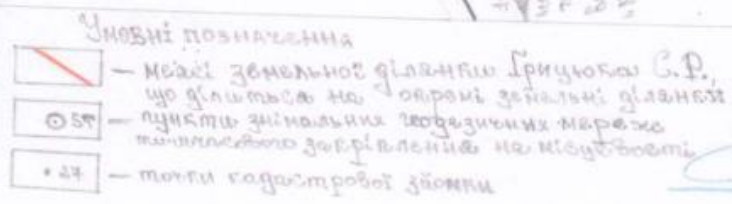 Умовні позначення
— межі земельної ділянки Грицюка С.Р.,
що ділиться на окремі земельні ділянки
⊙ 5т — пункти знімальних геодезичних мереж
тимчасового закріплення на місцевості
• 27 — точки кадастрової зйомки